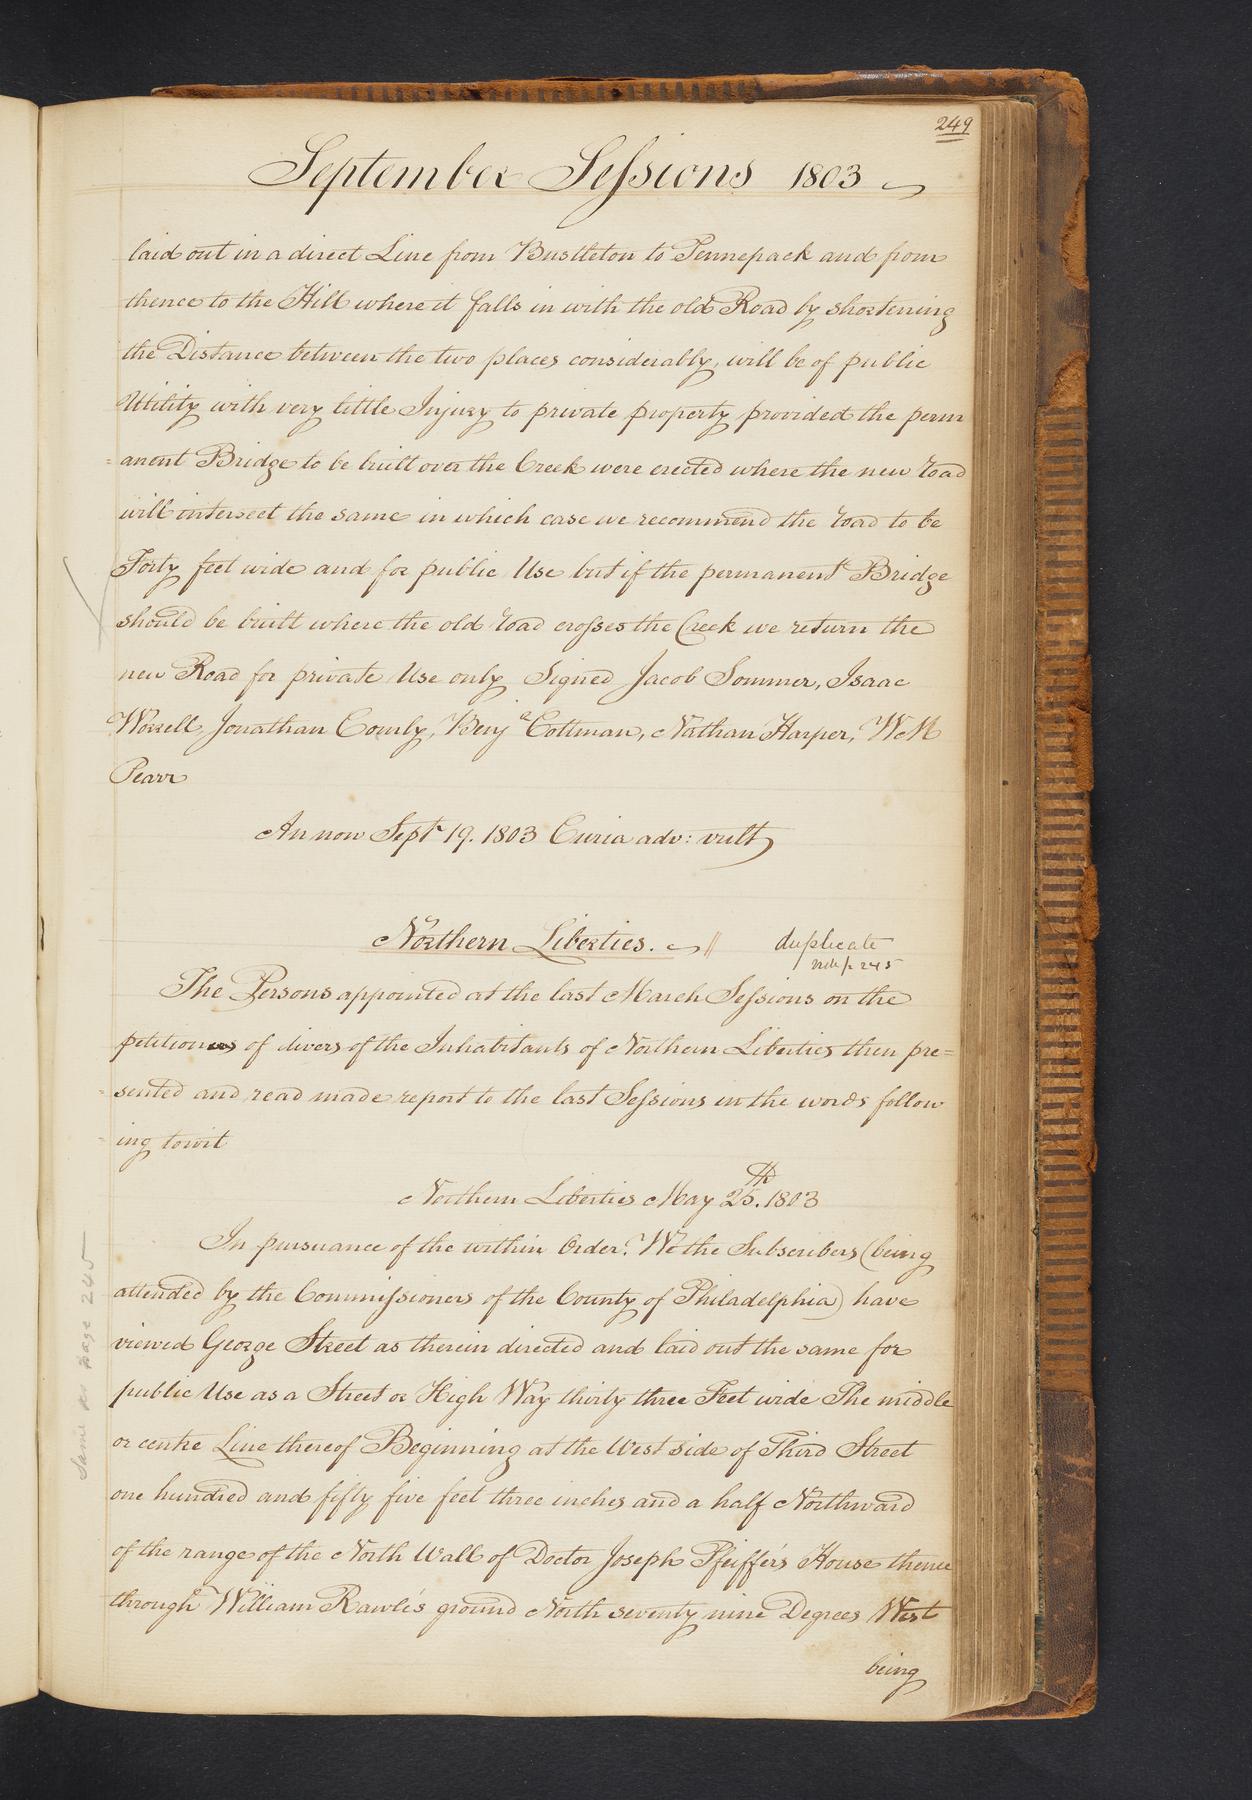 249
September Sessions 1803
laid out in a direct Line from Bustleton to Pennepack and from
thence to the Hill where it falls in with the old Road by shortening
the Distance between the two places considerably, will be of public
Utility with very little Injury to private property provided the perm
anent Bridge to be built over the Creek were erected where the new road
will intersect the same in which case we recommend the road to be
Forty feet wide and for public Use but if the permanent Bridge
should be built where the old road crosses the Creek we return the
new Road for private Use only Signed Jacob Sommer, Isaac
Worrell, Jonathan Comly, Benjᵃ Cottman, Nathan Harper, Wm
Pearr
An now Septr 19. 1803 Curia adv: vult
Northern Liberties. duplicate
vide p 245
The Persons appointed at the last March Sessions on the
petitioners of divers of the Inhabitants of Northern Liberties then pre=
sented and read made report to the last Sessions in the words follow
ing towit
Northern Liberties May 25th. 1803
In pursuance of the within Order. We the Subscribers (being
attended by the Commissioners of the County of Philadelphia) have
viewed George Street as therein directed and laid out the same for
public Use as a Street or High Way thirty three Feet wide The middle
or centre Line thereof Beginning at the West side of Third Street
one hundred and fifty five feet three inches and a half Northward
of the range of the North Wall of Doctor Joseph Pfeiffer's House thence
through William Rawle's ground North seventy nine Degrees West
being
Same as page 245